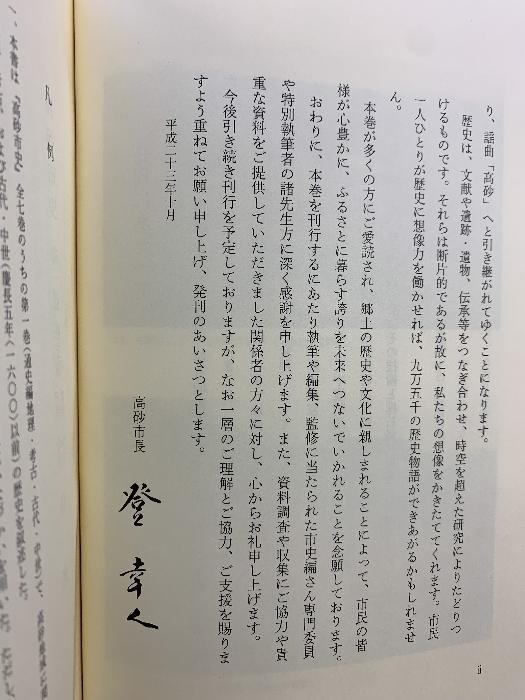 り、謡曲「高砂」へと引き継がれてゆくことになります。
歴史は、文献や遺跡・遺物、伝承等をつなぎ合わせ、時空を超えた研究によりたどりつ
けるものです。それらは断片的であるが故に、私たちの想像をかきたててくれます。市民
一人ひとりが歴史に想像力を働かせれば、九万五千の歴史物語ができあがるかもしれませ
ん。
本巻が多くの方にご愛読され、郷土の歴史や文化に親しまれることによって、市民の皆
様が心豊かに、ふるさとに暮らす誇りを未来へつないでいかれることを念願しております。
おわりに、本巻を刊行するにあたり執筆や編集、監修に当たられた市史編さん専門委員
や特別執筆者の諸先生方に深く感謝を申し上げます。また、資料調査や収集にご協力や貴
重な資料をご提供していただきました関係者の方々に対し、心からお礼申し上げます。
今後引き続き刊行を予定しておりますが、なお一層のご理解とご協力、ご支援を賜りま
すよう重ねてお願い申し上げ、発刊のあいさつとします。
平成二十三年十月
高砂市長
登幸人
ii
凡例
一、本書は『高砂市史』全七巻のうちの第一巻(通史編地理・考古・古代・中世)で、
古代・中世(慶長五年〈一六〇〇〉以前)の歴史を叙述した。